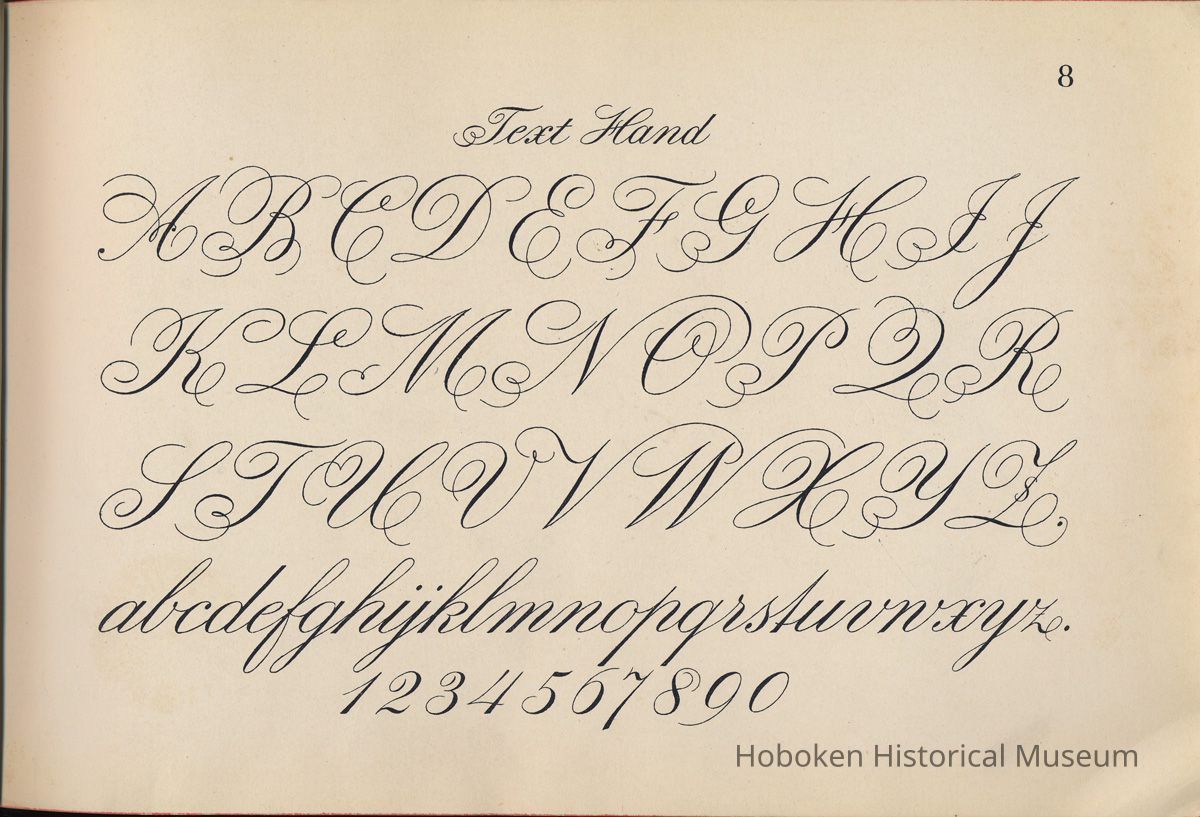 8
Text Hand
A B C D E F G H I J
K L M N O P Q R
S T U V W X Y Z.
abcdefghijklmnopqrstuvwxyz.
1234567890
Hoboken Historical Museum